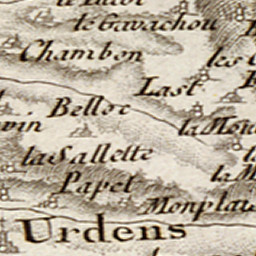 le Gavachou
Chambon
les
Last
Belloc
vin
la Mou
la Sallette
la
la M
Papet
Monplais
Urdens